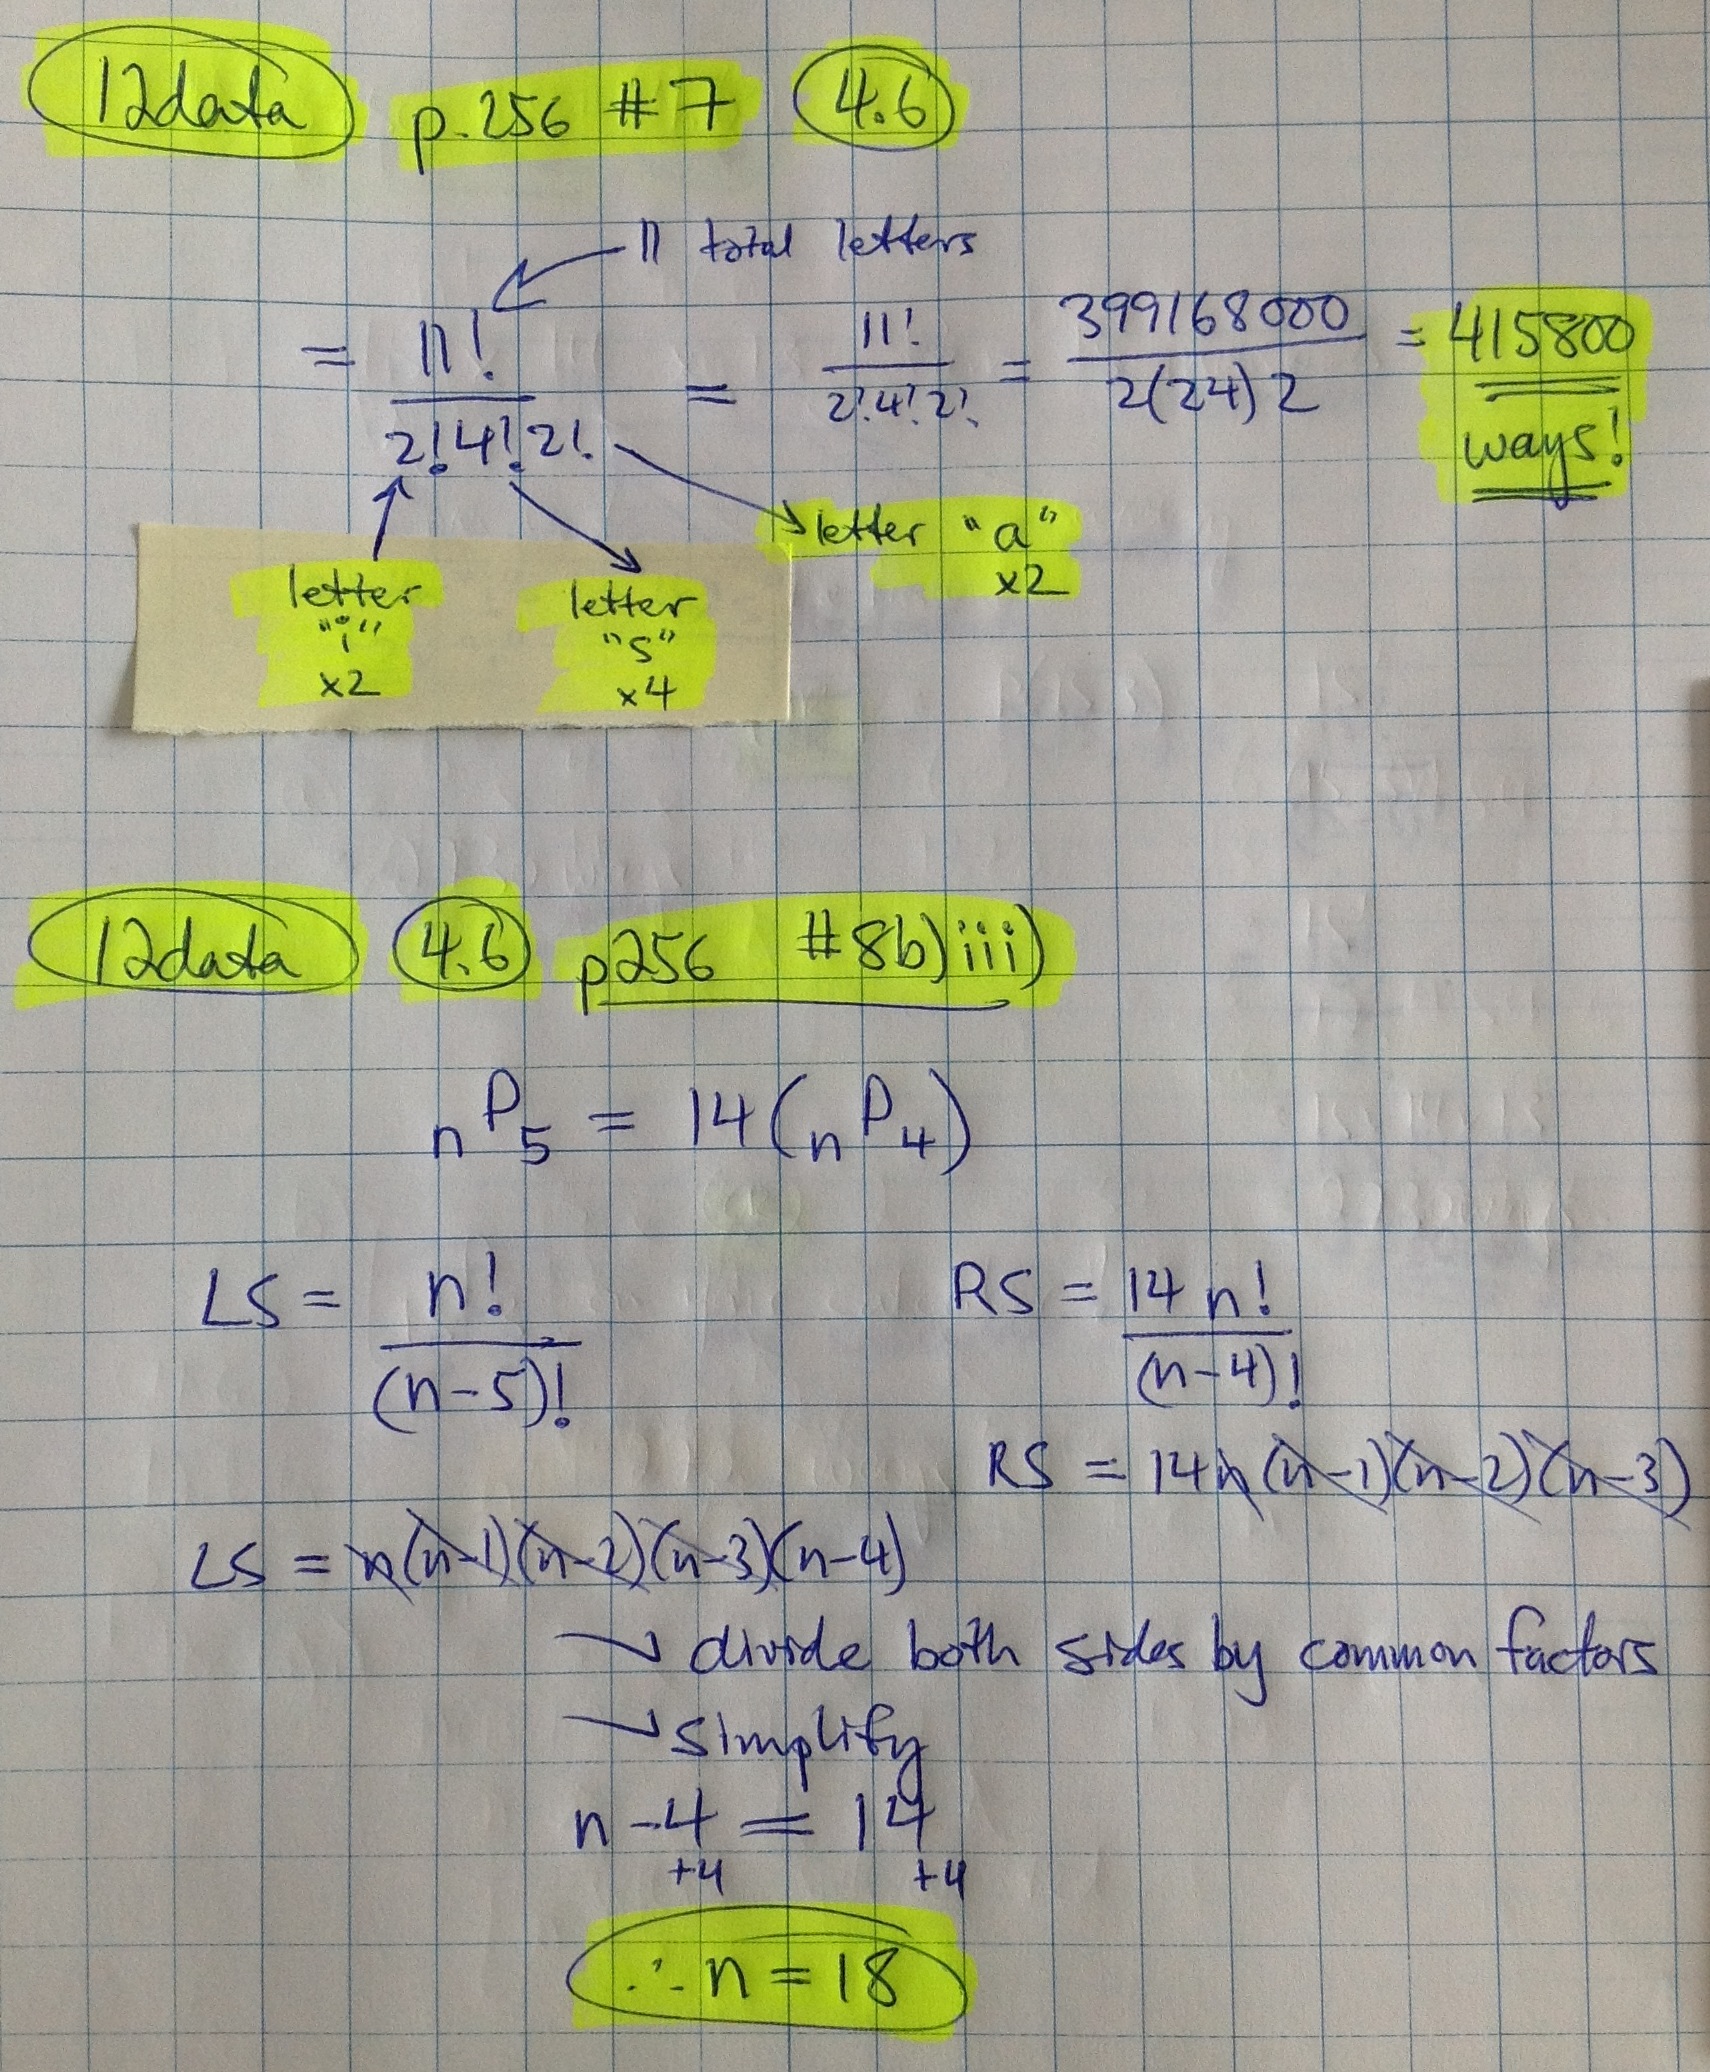 12data p.256 #7 4.6
11 total letters
= 11! / 2!4!2! = 11! / 2!4!2! = 399168000 / 2(24)2 = 415800
ways!
letter "i" x2
letter "s" x4
letter "a" x2
12data 4.6 p256 #8b)iii)
nP5 = 14(nP4)
LS = n! / (n-5)!
RS = 14 n! / (n-4)!
RS = 14n(n-1)(n-2)(n-3)
LS = n(n-1)(n-2)(n-3)(n-4)
→ divide both sides by common factors
→ simplify
n-4 = 14
+4 +4
∴ n = 18